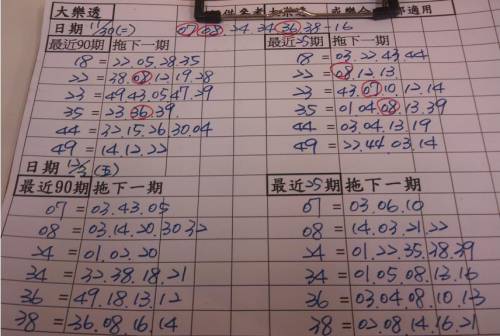 大樂透 供參考 大樂透 適用
日期 11/30(二) 07 08 24 34 36 38-16
最近90期 拖下一期 最近25期 拖下一期
18 = 22.05.28.35 18 = 03.22.43.44
22 = 38.08.12.19.28 22 = 08.12.13
23 = 49.43.05.47.39 23 = 43.07.10.12.14
35 = 23.36.39. 35 = 01.04.08.13.39
44 = 32.15.26.30.04 44 = 03.04.13.19
49 = 14.12.22 49 = 22.44.03.14
日期 12/3(五)
最近90期 拖下一期 最近25期 拖下一期
07 = 03.43.05 07 = 03.06.10
08 = 03.14.20.30.32 08 = 14.03.21.22
24 = 01.02.20 24 = 01.22.35.38.39
34 = 32.38.18.21 34 = 01.05.08.13.16
36 = 49.18.13.12 36 = 03.04.08.10.13
38 = 36.08.16.14 38 = 02.08.14.16.21